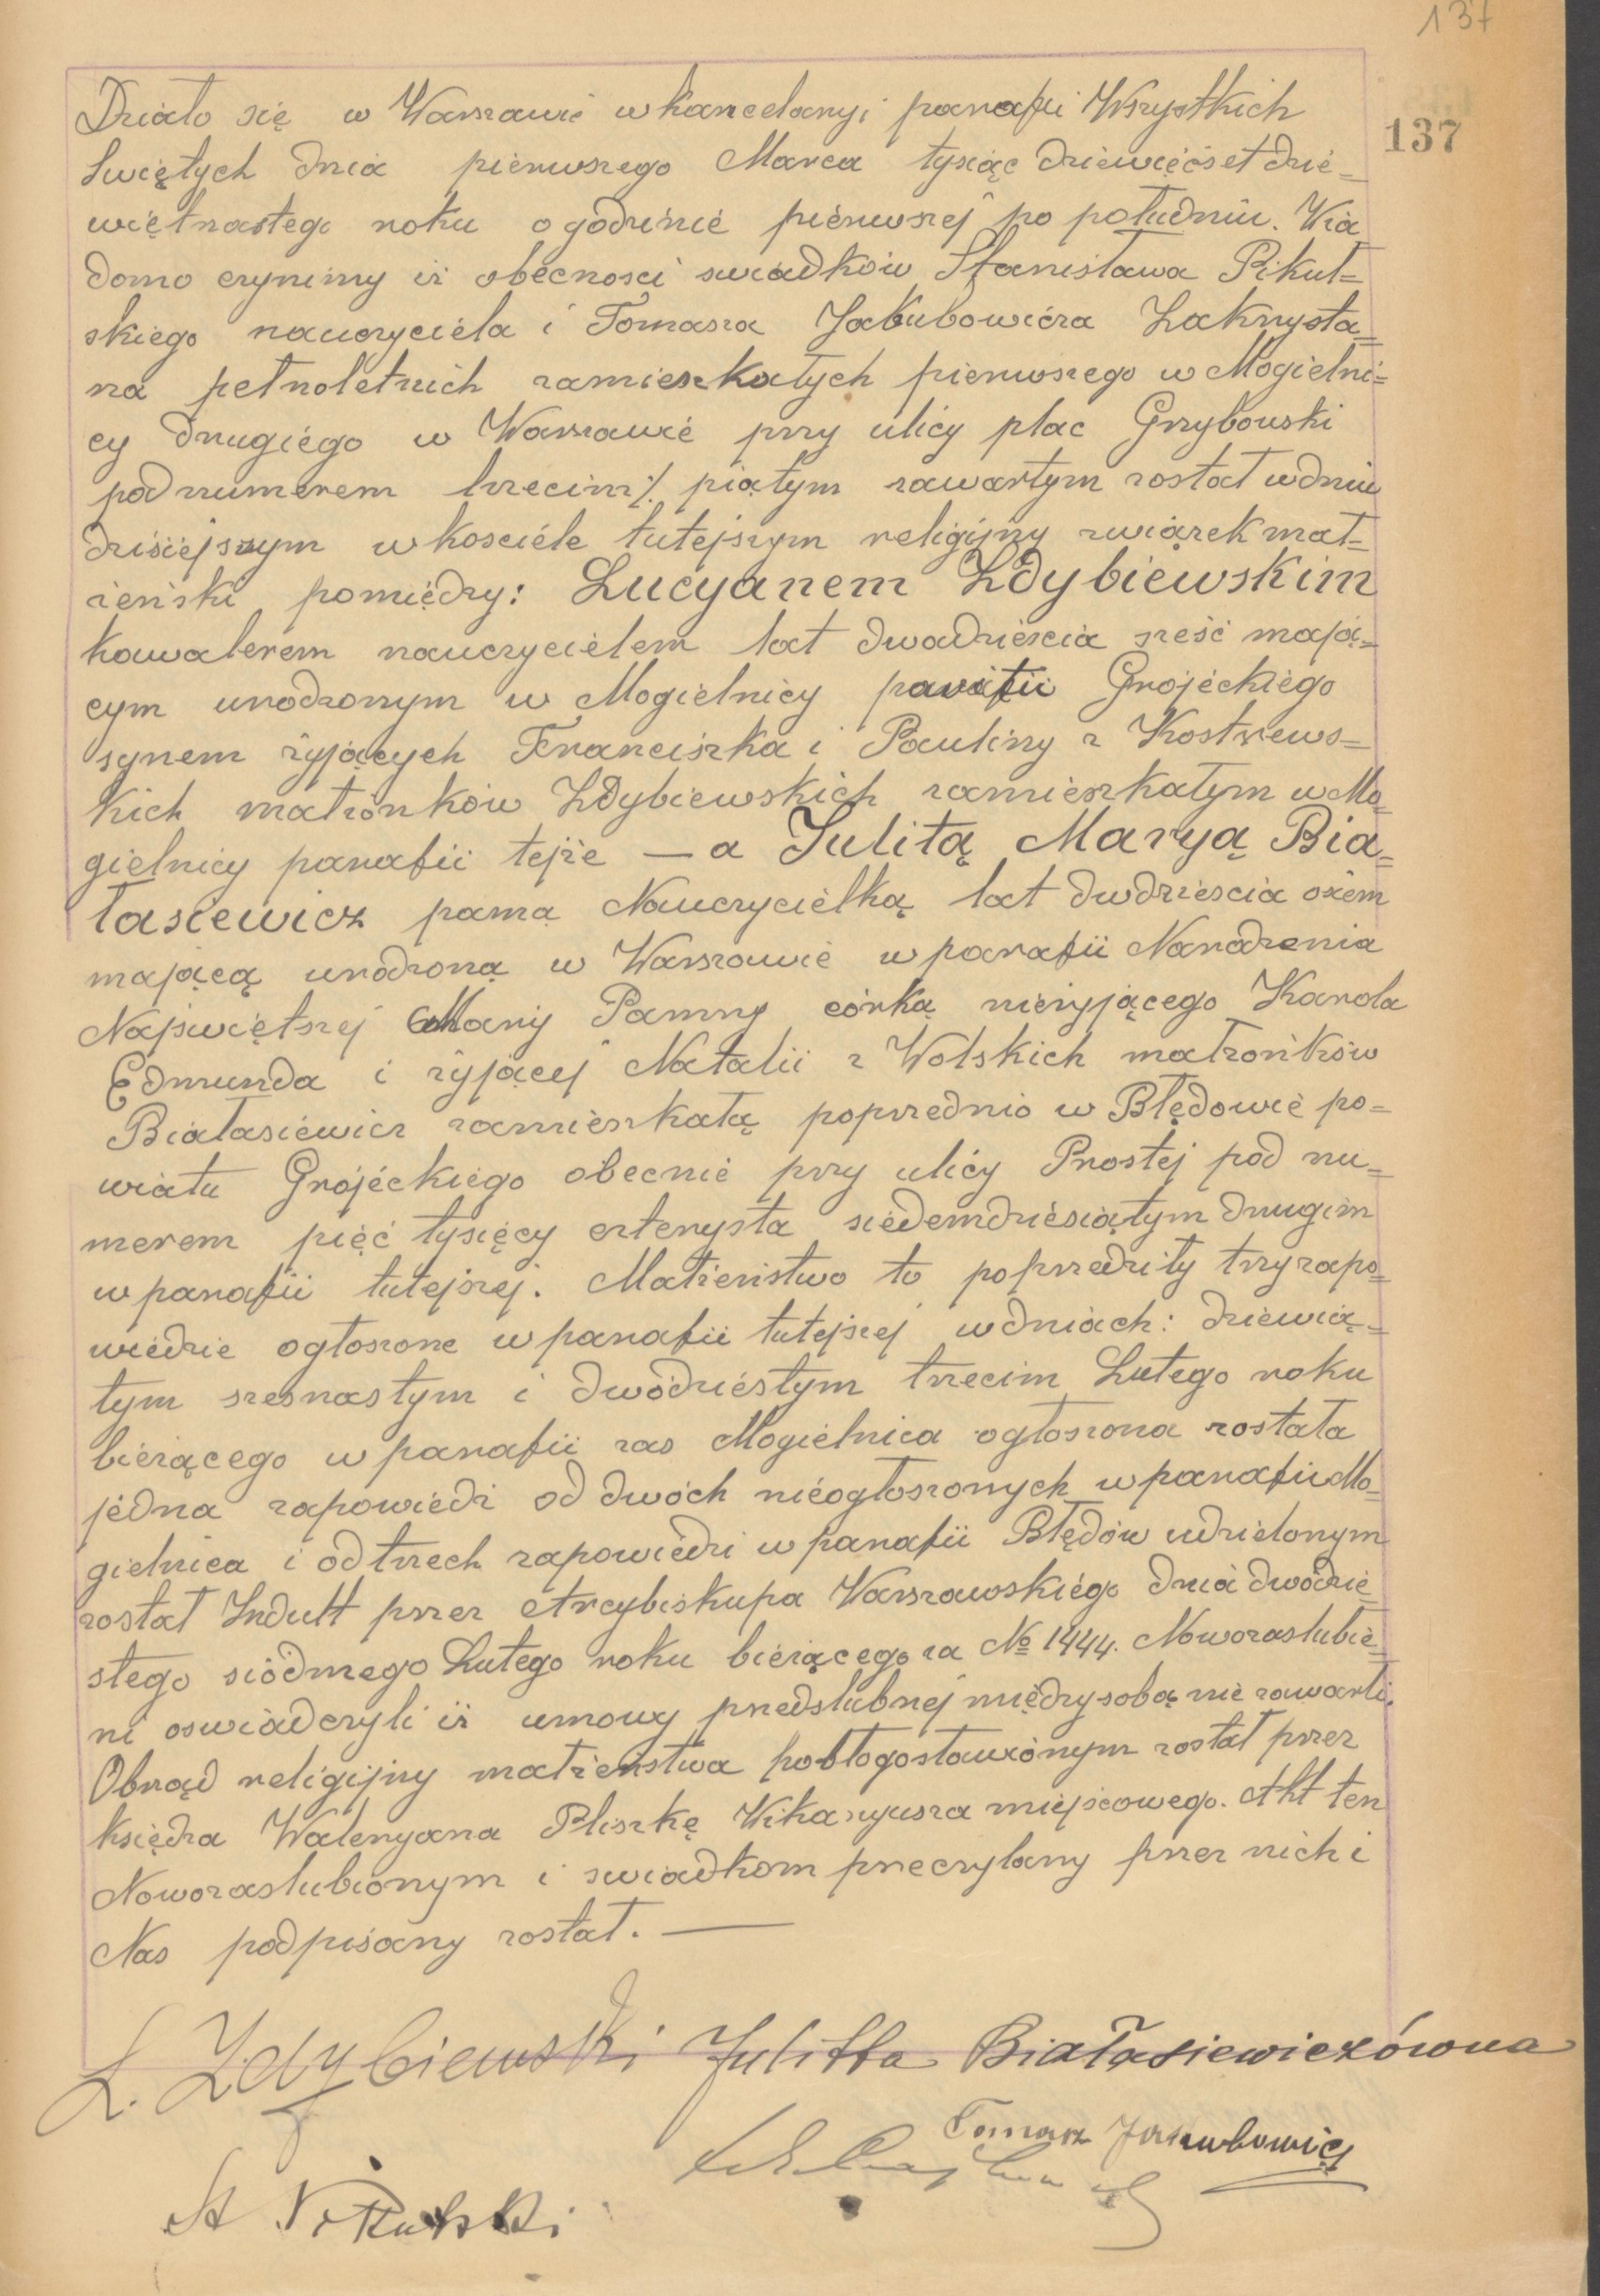 137
137
Działo się w Warszawie w kancelaryi parafii Wszystkich
Swiętych dnia pierwszego Marca tysiąc dziewięćset dzie=
więtnastego roku o godzinie pierwszej po południu. Wia
domo czynimy iż obecnosci swiadków Stanisława Pikul=
skiego nauczyciela i Tomasza Jakubowicza Zakrysta=
na pełnoletnich zamieszkałych pierwszego w Mogielni=
cy drugiego w Warszawie przy ulicy plac Grzybowski
pod numerem trzecim/ piątym zawartym został w dniu
dzisiejszym w kosciele tutejszym religijny związek mał=
żeński pomiędzy: Lucyanem Zdybiewskim
kawalerem nauczycielem lat dwadziescia sześć mają=
cym urodzonym w Mogielnicy parafii Grojeckiego
synem żyjących Franciszka i Pauliny z Kostrzews=
kich małżonków Zdybiewskich zamieszkałym w Mo=
gielnicy parafii tejże — a Julitą Maryą Bia=
łasiewicz panną Nauczycielką lat dwdziescia osiem
mającą urodzoną w Warszawie w parafii Narodzenia
Najswiętszej Maryi Panny córką nieżyjącego Karola
Edmunda i żyjącej Natalii z Wolskich małżonków
Białasiewicz zamieszkałą poprzednio w Błędowie po=
wiatu Grojeckiego obecnie przy ulicy Prostej pod nu=
merem pięć tysięcy czterysta siedemdziesiątym drugim
w parafii tutejszej. Małżeństwo to poprzedziły trzy zapo=
wiedzie ogłoszone w parafii tutejszej w dniach: dziewią=
tym szesnastym i dwódziestym trzecim Lutego roku
bieżącego w parafii zas Mogielnica ogłoszona została
jedna zapowiedź od dwóch nieogłoszonych w parafii Mo=
gielnica i od trzech zapowiedzi w parafii Błędów udzielonym
został Indult przez Arcybiskupa Warszawskiego dnia dwódzie=
stego siódmego Lutego roku bieżącego za № 1444. Nowozaslubie=
ni oswiadczyli iż umowy przedslubnej między sobą nie zawarli.
Obrząd religijny małżeństwa pobłogosławionym został przez
księdza Waleryana Pliszkę Wikaryusza miejscowego. Akt ten
Nowozaslubionym i swiadkom przeczytany przez nich i
Nas podpisany został. —
L. Zdybiewski Julitta Białasiewiczówna
Tomasz Jakubowicz
St Pikulski